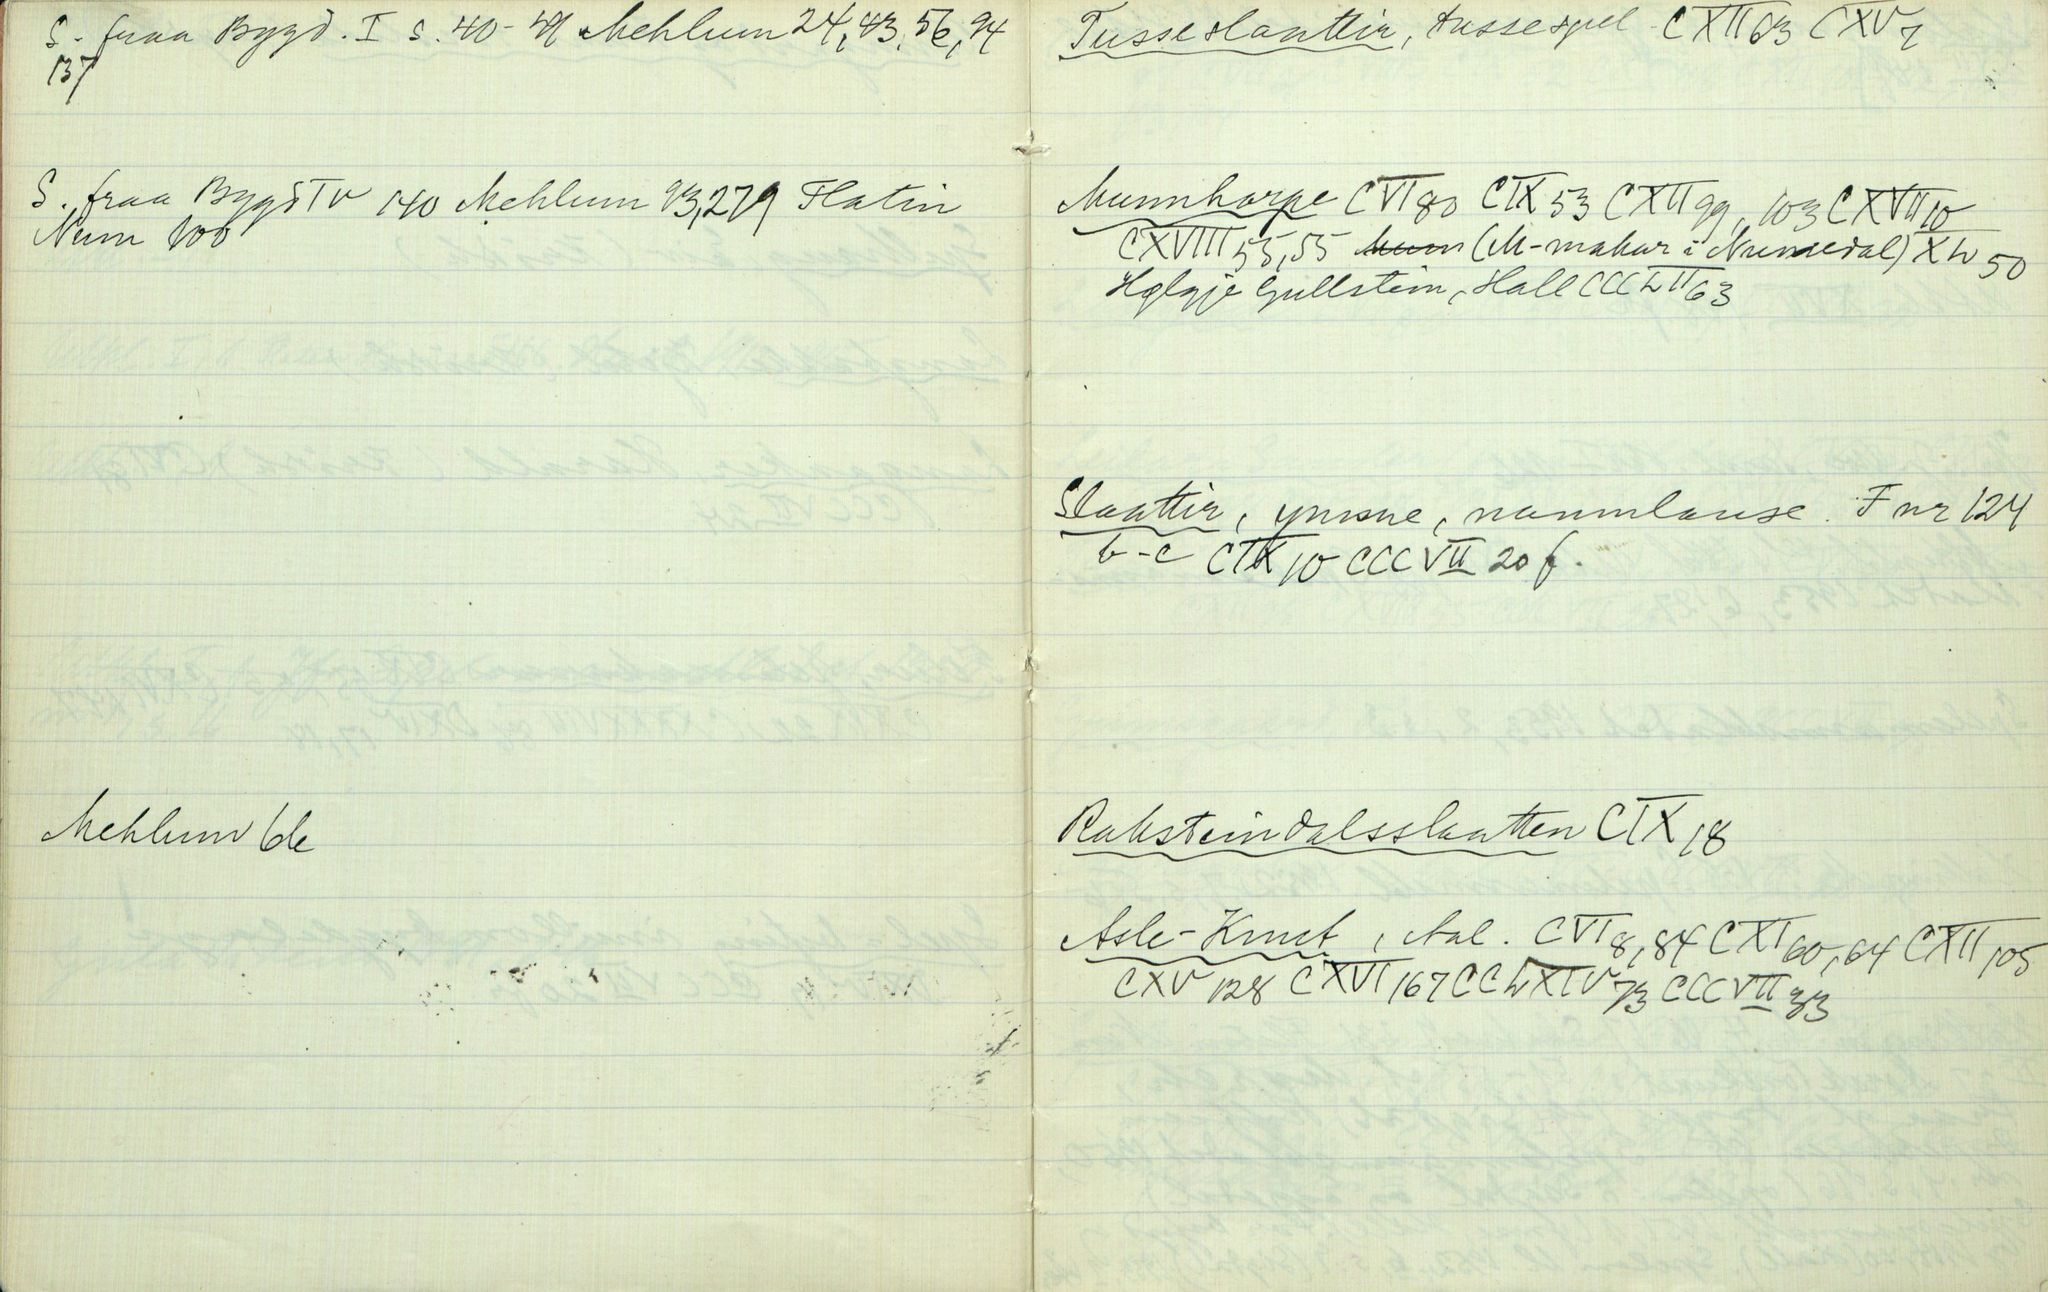 S. fraa Bygd. I s. 40-41 Mehlum 24, 43, 56, 94
137
S. fraa Bygd IV 140 Mehlum 93, 279 Flatin
Num 100
Mehlum 61
Tusseslaattir, tussespel CXII 63 CXV 7
Munnharpe CVI 80 CIX 53 CXII 99, 103 CXVII 10
CXVIII 55, 55 (M-makar i Numedal) XL 50
Hølgje Gullstein, Hall CCCLII 63
Slaattir, ymsne, namnlause. F nr 124
b-c CIX 10 CCCVII 20 f.
Raksteindalsslaatten CIX 18
Asle-Knut, Aal. CVI 8, 84 CXI 60, 64 CXII 105
CXV 128 CXVI 167 CCLXIV 73 CCCVII 33